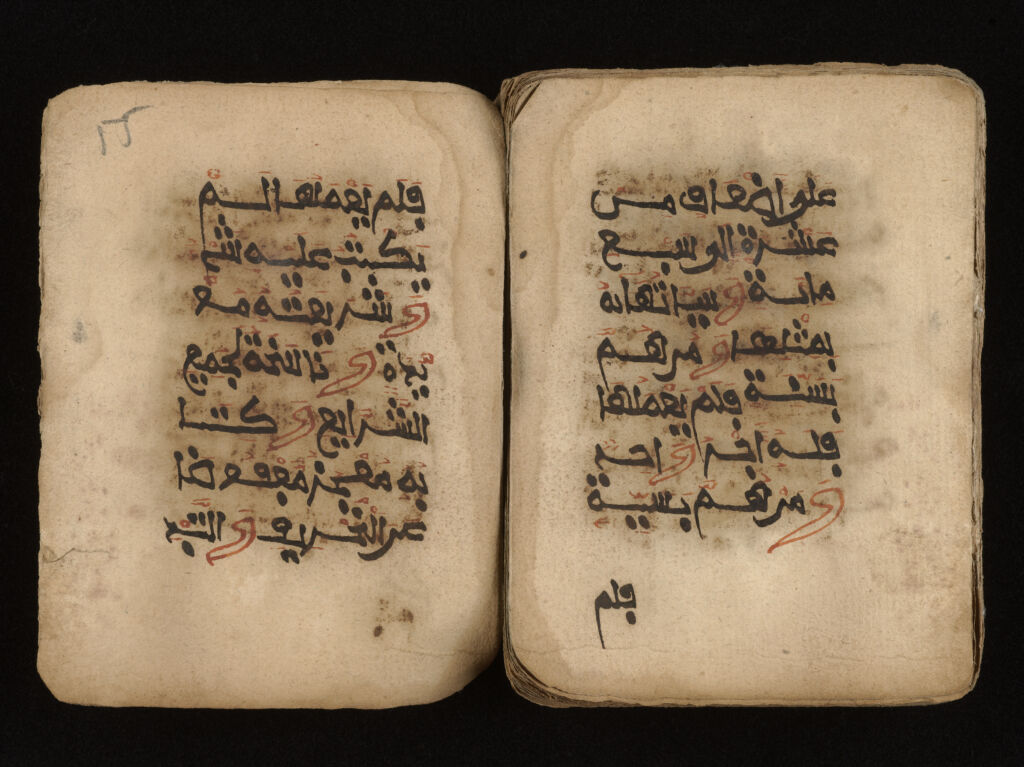 على اضعاف من
عشرة الى سبع
ماية و سياتها
بمثلها و من هم
بحسنة فلم يعملها
فله اجر واحد
و من هم بسيية
فلم
فلم يعملها لم
يكتب عليه شيء
و شريعته مو
بدة و ناسخة لجميع
الشرايع و كتا
به معجز محفوظا
عن التحريف و التبد